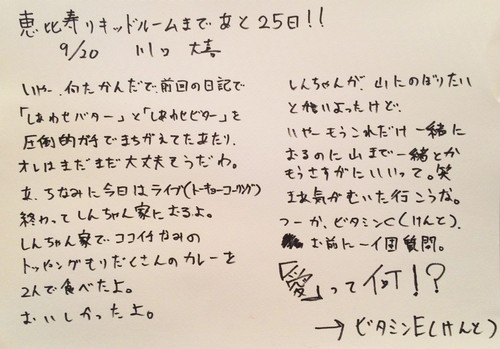 恵比寿リキッドルームまであと25日!!
9/20 川口 大喜
いやー、何だかんだで前回の日記で
「しあわせバター」と「しあわせビター」を
圧倒的ガチでまちがえてたあたり、
オレはまだまだ大丈夫そうだわ。
あ、ちなみに今日はライブ(トーキョーコーリング)
終わってしんちゃん家におるよ。
しんちゃん家でココイチなみの
トッピングもりだくさんのカレーを
2人で食べたよ。
おいしかったよ。
しんちゃんが、山にのぼりたい
と言いよったけど、
いやーもうこれだけ一緒に
おるのに山まで一緒とか
もうさすがにいいって。笑
まあ気がむいたら行こうな。
つーか、ビタミンC(けんと)、
お前に一個質問。
「愛」って何!?
→ビタミンE(けんと)